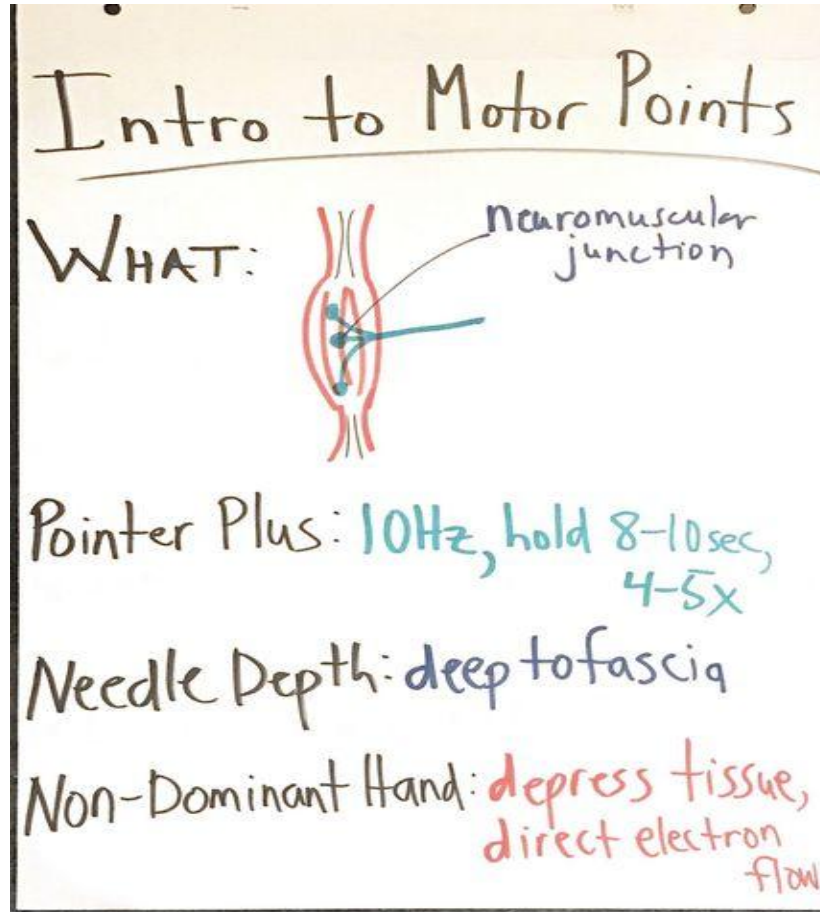 Intro to Motor Points
WHAT:
neuromuscular
junction
Pointer Plus: 10Hz, hold 8-10sec,
4-5x
Needle Depth: deep to fascia
Non-Dominant Hand: depress tissue,
direct electron
flow